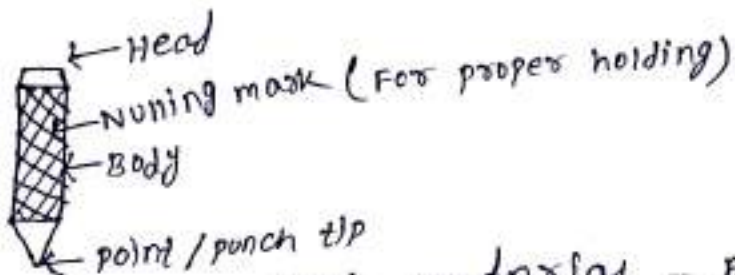 Head
Nuning mark (For proper holding)
Body
point / punch tip